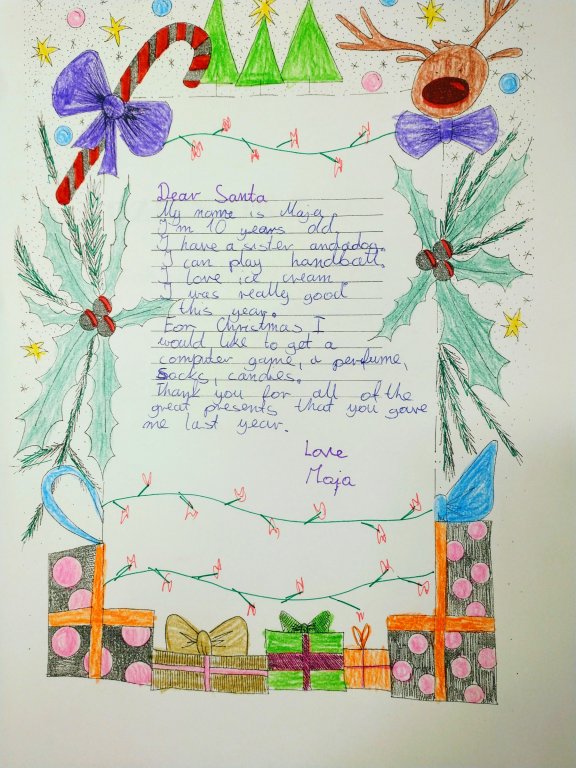 Dear Santa
My name is Maja
I'm 10 years old,
I have a sister and a dog.
I can play handball,
I love ice cream.
I was really good
this year.
For Christmas I
would like to get a
computer game, a perfume,
Socks, candles.
Thank you for all of the
great presents that you gave
me last year.
Love
Maja